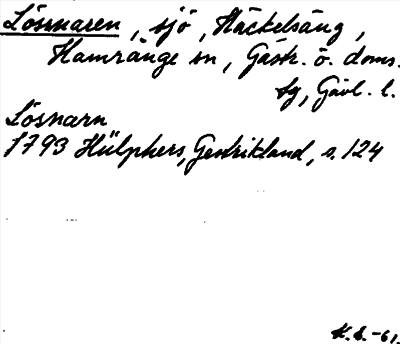 Lössnaren, sjö, Häckelsäng,
Hamrånge sn, Gästr. ö. doms.
sg, Gävl. l.
Lösnarn
1793 Hülphers, Gestrikland, s. 124
K.L. -61.